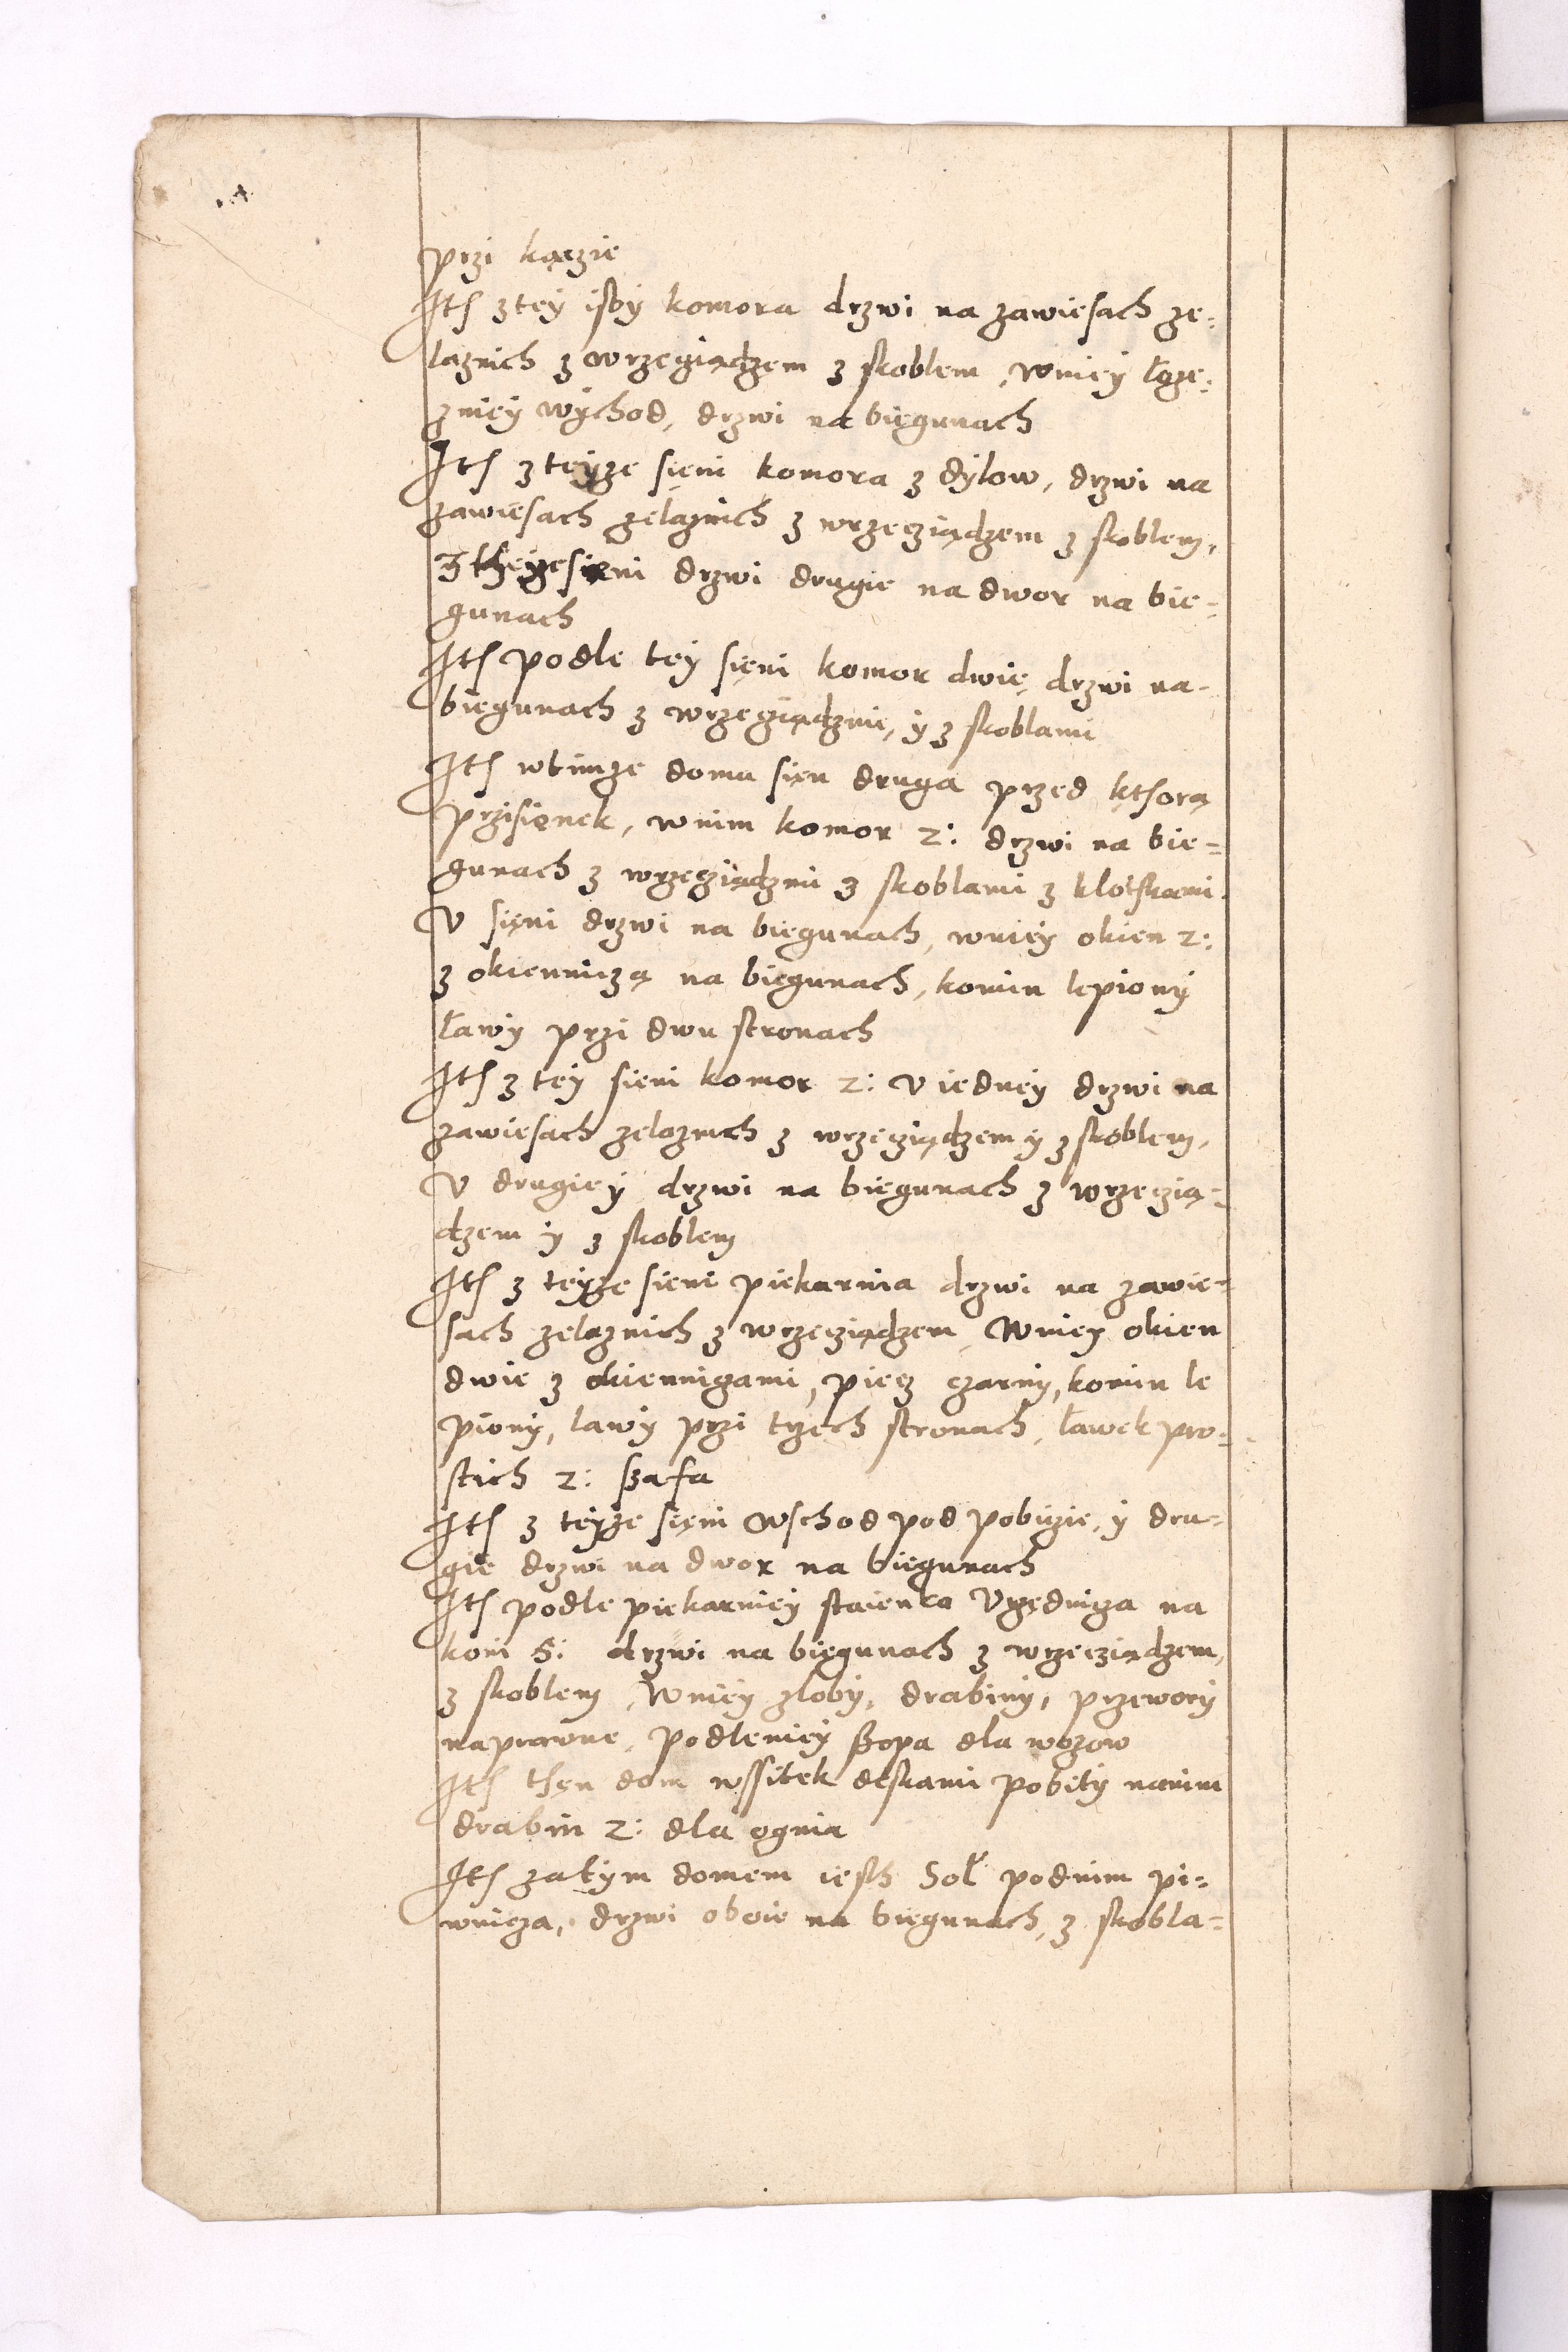 przi kączie
Its z tey isby komora drzwi na zawiesach ze-
laznich z wrzeciądzem z skoblem, wniey łoze:
zniey wychod, drzwi na biegunach
Its z teyze sięni komora z dylow, drzwi na
zawiesach zelaznich z wrzecziądzem z skoblem,
z theyze sieni drzwi drugie na dwor na bie-
gunach
Its podle tey sięni komor dwie, drzwi na-
biegunach z wrzecziądzmi, y z skoblami
Its wtimze domu sięn druga przed kthorą
przisionek, wnim komor 2: drzwi na bie-
gunach z wrzecziądzmi z skoblami z klotskami.
V sięni drzwi na biegunach, wniey okien 2:
z okienniczą na biegunach, komin lepiony
ławy przi dwu stronach
Its z tey sieni komor 2: v iedney drzwi na
zawiesach zelaznich z wrzecziądzem y z skoblem,
V drugiey drzwi na biegunach z wrzeczią-
dzem y z skoblem
Its z teyze sieni piekarnia drzwi na zawie-
sach zelaznich z wrzecziądzem, Wniey okien
dwie z okiennicami, piecz czarny, komin le
piony, lawy przi trzech stronach, ławek pro-
stich 2: szafa
Its z teyze sięni wschod pod pobicie, y dru-
gie drzwi na dwor na biegunach
Its podle piekarniey staienka Vrzędnicza na
koni 5: drzwi na biegunach z wrzecziądzem,
z skoblem, Wniey zloby, drabiny, przewory
naprawne, Podleniey szopa dla wozow
Its thęn dom wssitek deskami pobity nanim
drabin 2: dla ognia
Its zatym domem iesth Soł podnim pi-
wnicza, drzwi oboie na biegunach, z skobla-